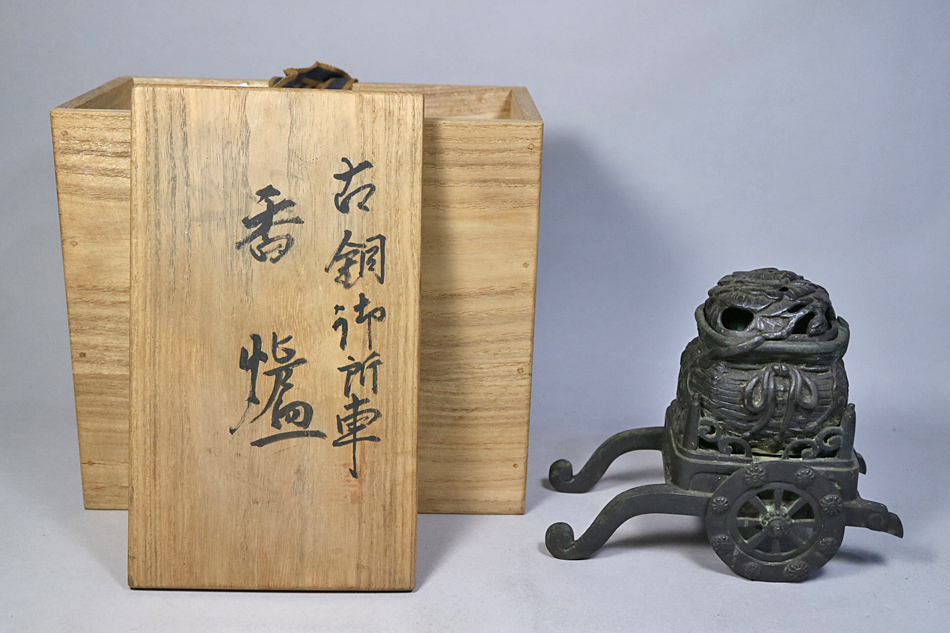 古銅御所車
香爐